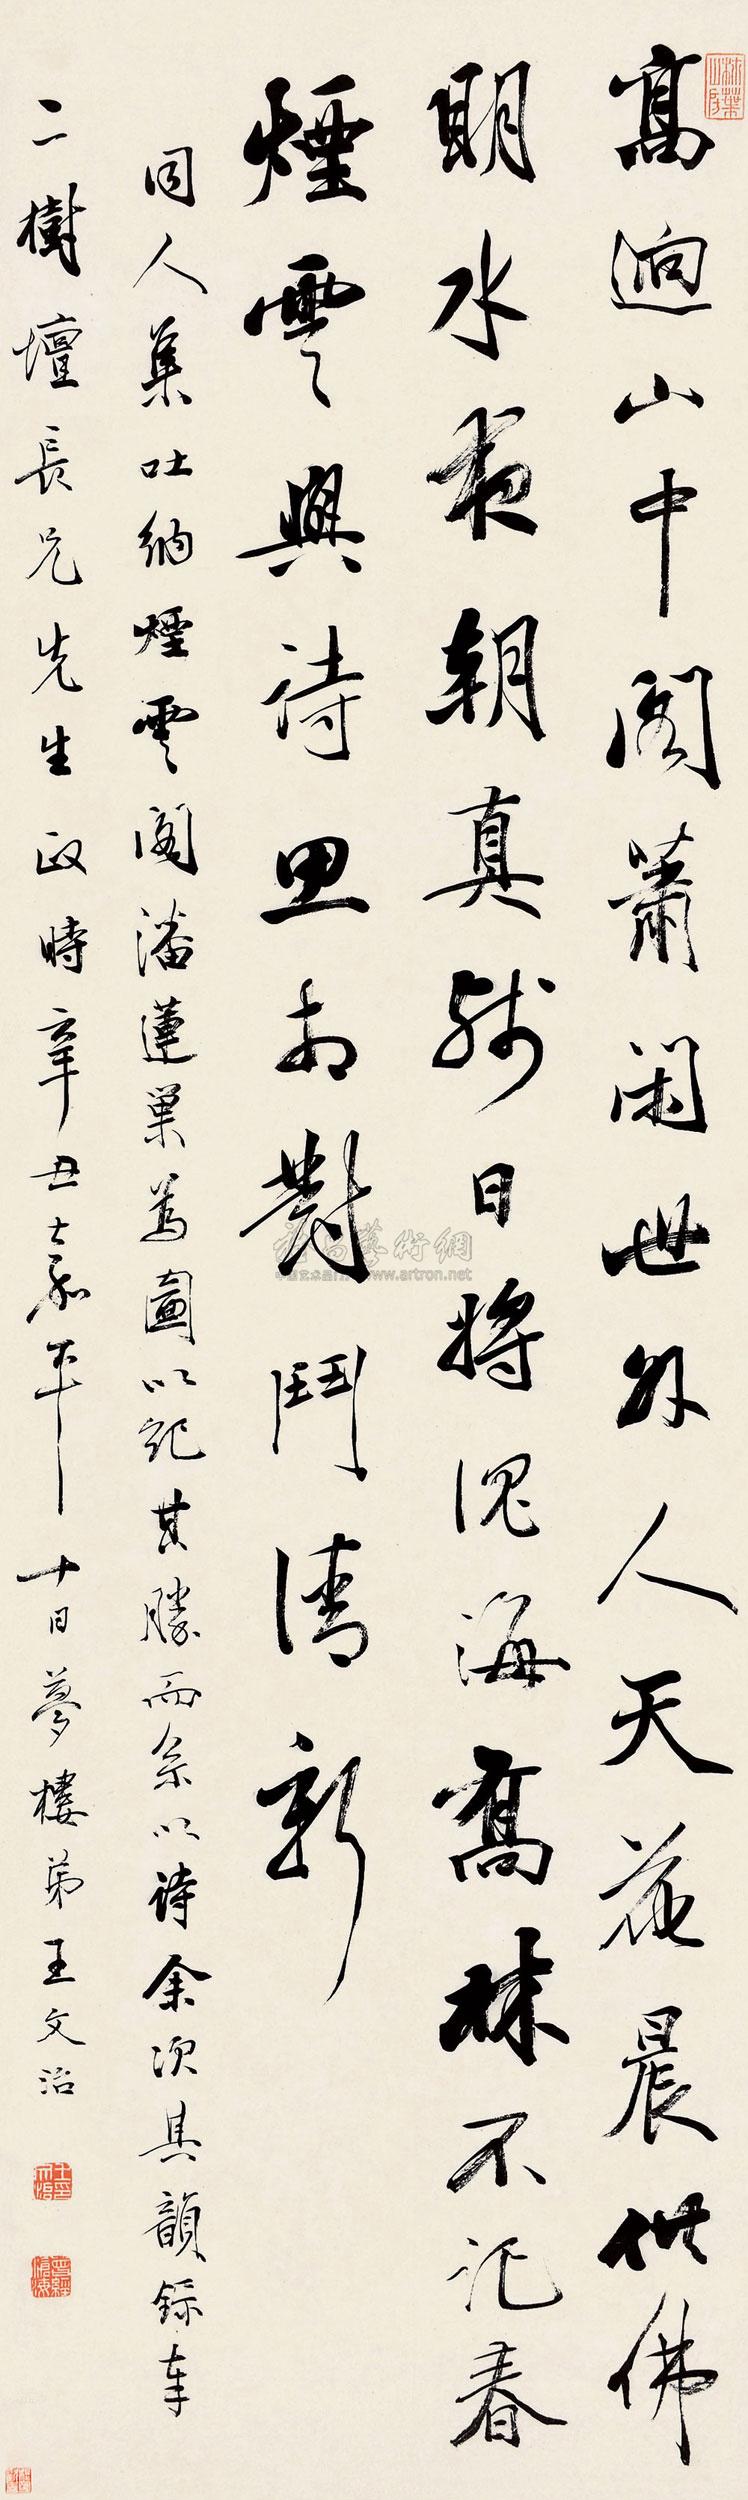 高迥山中閣蕭閒世外人天花晨供佛
明水夜朝真殘日將海喬林不記春
煙雲與詩思相對鬥清新
同人集吐納煙雲閣潘蓮巢為圖以記其勝而系以詩余次其韻錄奉
二樹壇長兄先生政時辛丑嘉平十日夢樓弟王文治
雅昌藝術網
www.artron.net